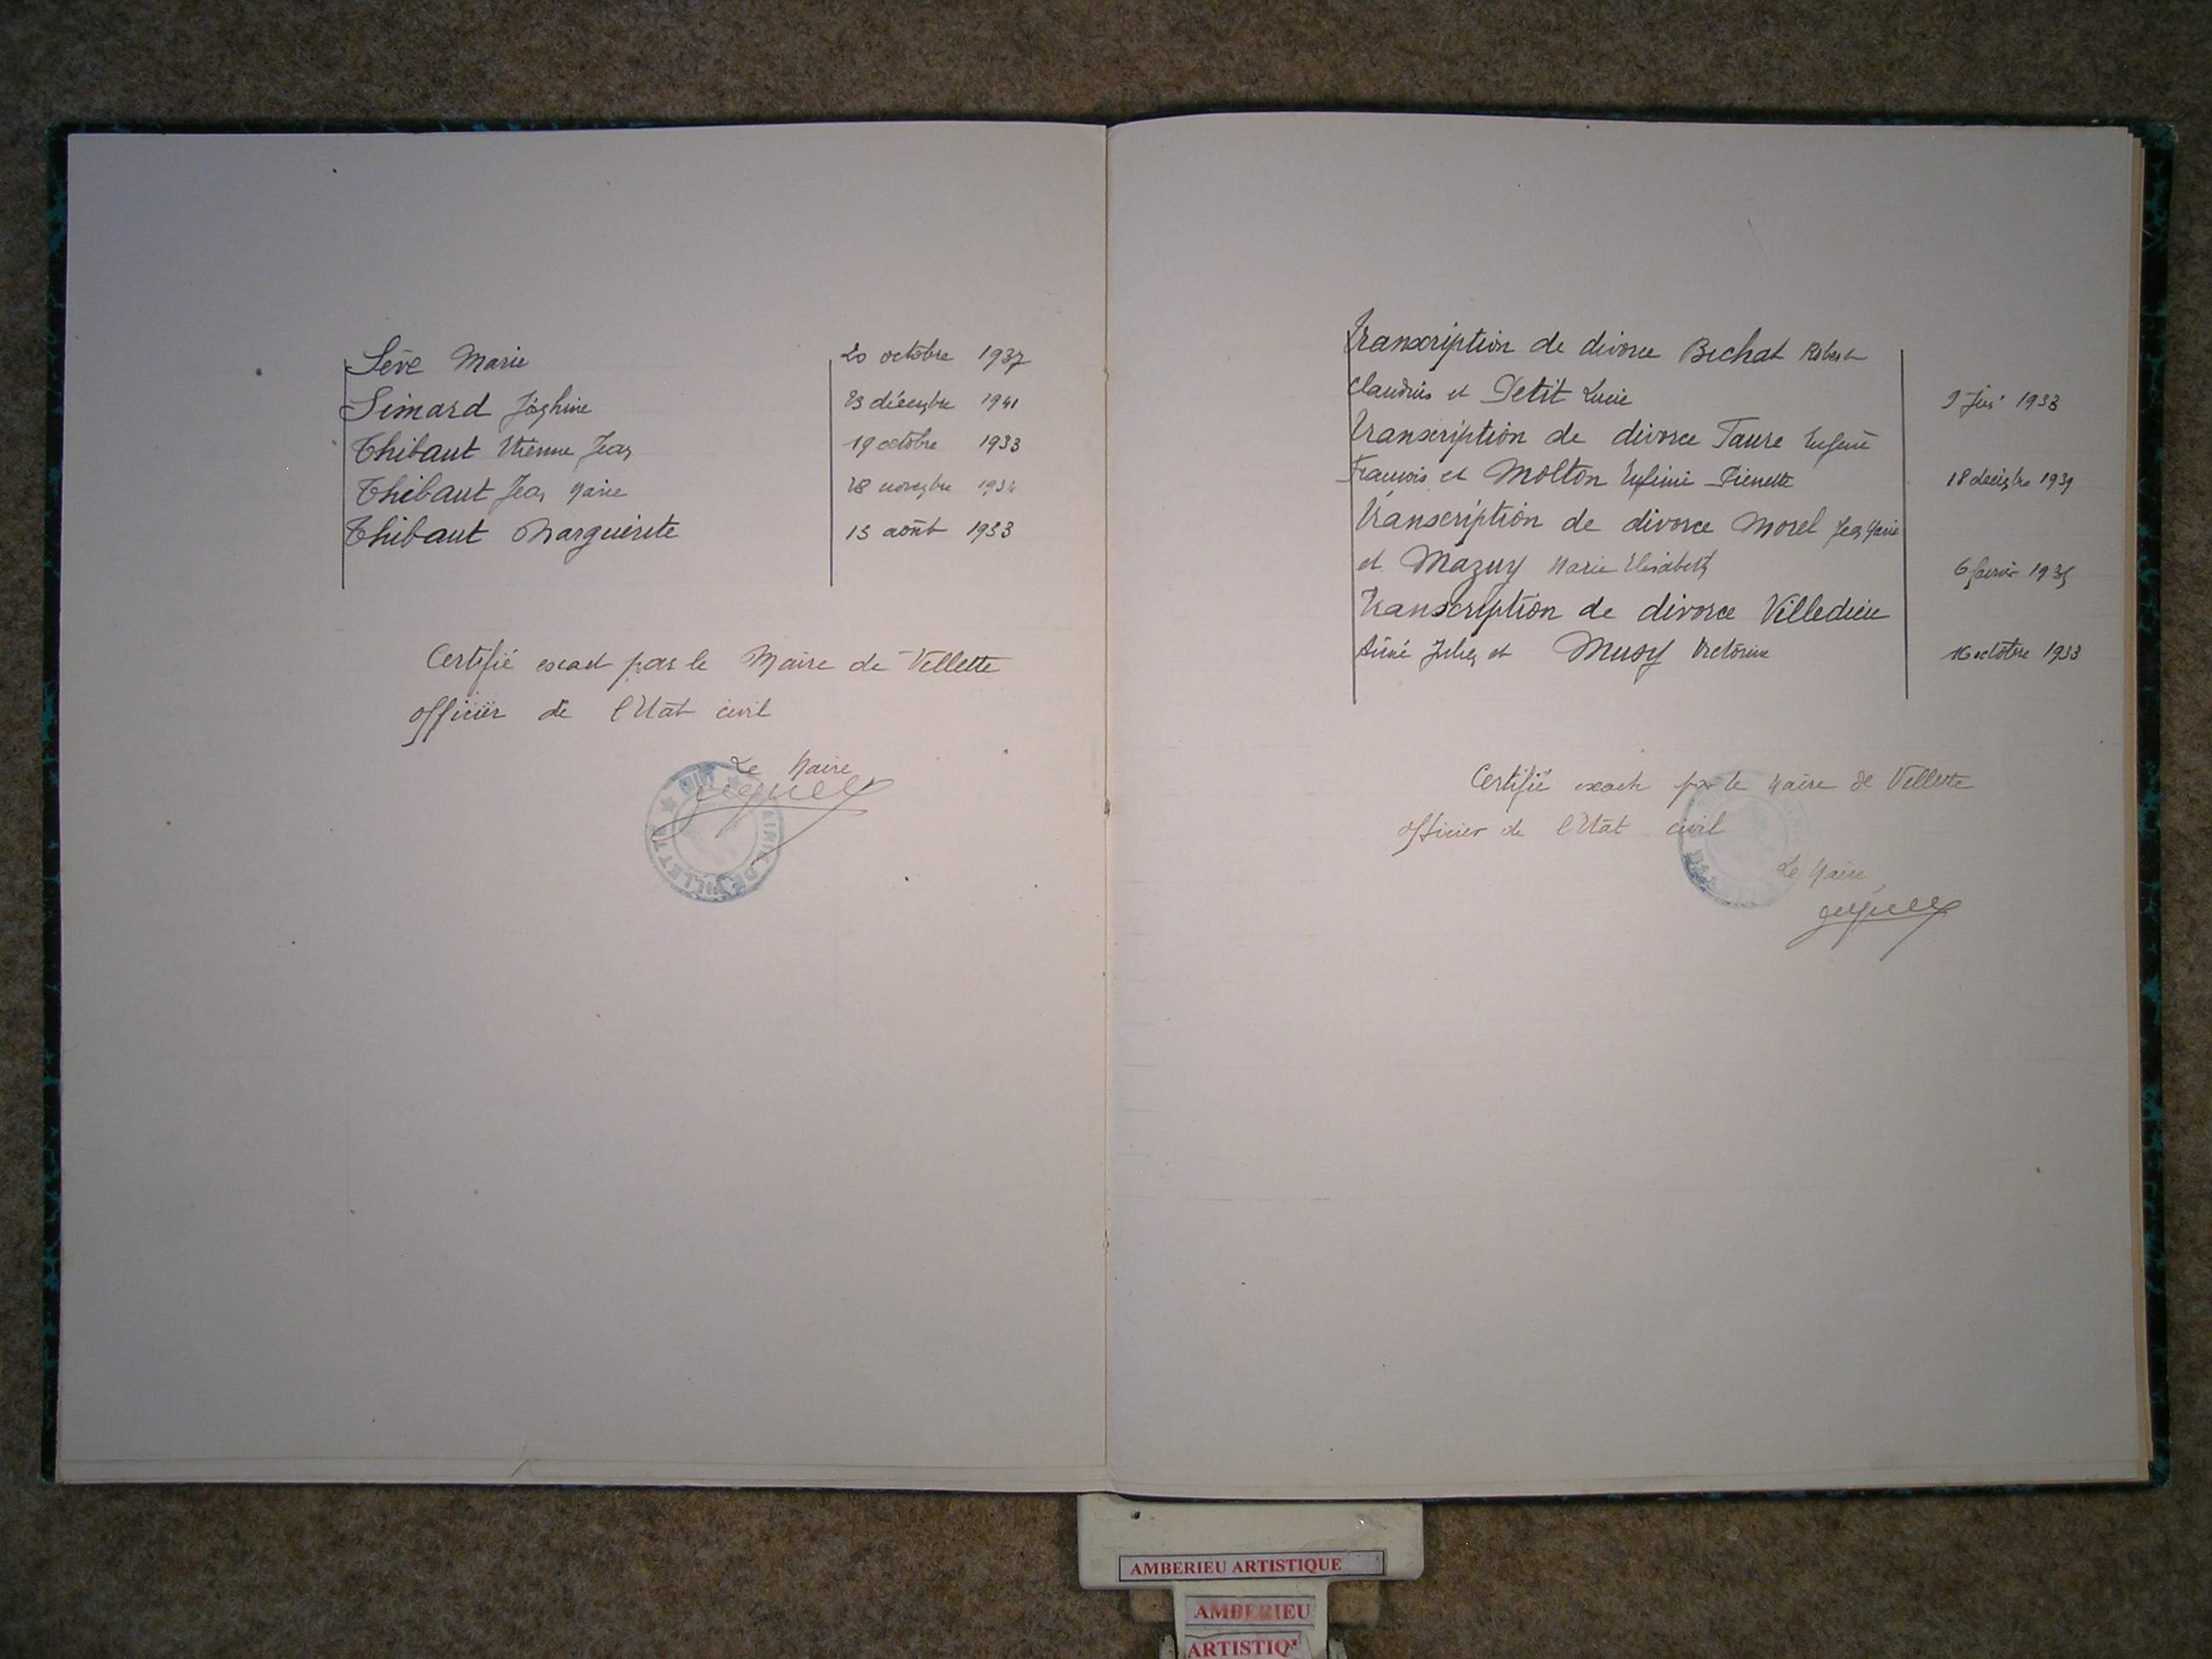 Sève Marie 20 octobre 1937
Simard Joséphine 23 décembre 1941
Thibaut Etienne Jean 19 octobre 1933
Thibaut Jean Marie 28 novembre 1934
Thibaut Marguerite 15 août 1933
Certifié exact par le Maire de Villette
officier de l'Etat civil
Le Maire
MAIRIE DE VILLETTE
AIN
Transcription de divorce Bichat Robert
Claudius et Petit Lucie 9 1938
Transcription de divorce Faure Eugène
François et Molton Pierrette 18 décembre 1939
Transcription de divorce Morel Jean Marie
et Mazuy Marie Elisabeth 6 février 1935
Transcription de divorce Villedieu
Aimé Julien et Musy Victorine 16 octobre 1933
Certifié exact par le Maire de Villette
officier de l'Etat civil
Le Maire,
AMBERIEU ARTISTIQUE
AMBERIEU
ARTISTIQ